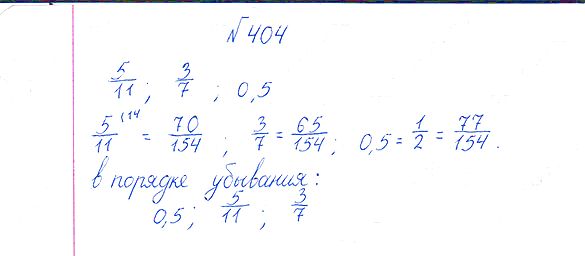 №404
5/11; 3/7; 0,5
5/11 (14 = 70/154; 3/7 = 65/154; 0,5 = 1/2 = 77/154.
в порядке убывания:
0,5; 5/11; 3/7